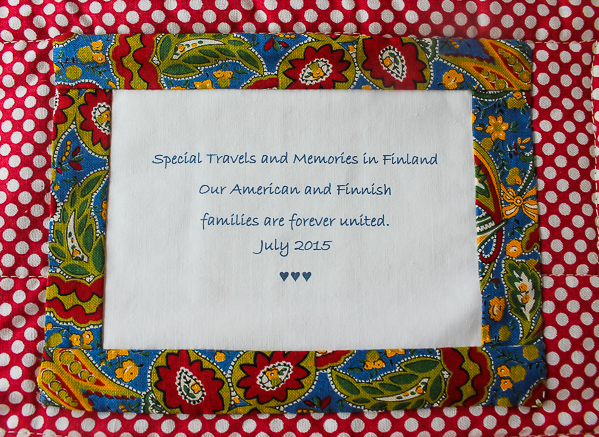 Special Travels and Memories in Finland
Our American and Finnish
families are forever united.
July 2015
♥♥♥